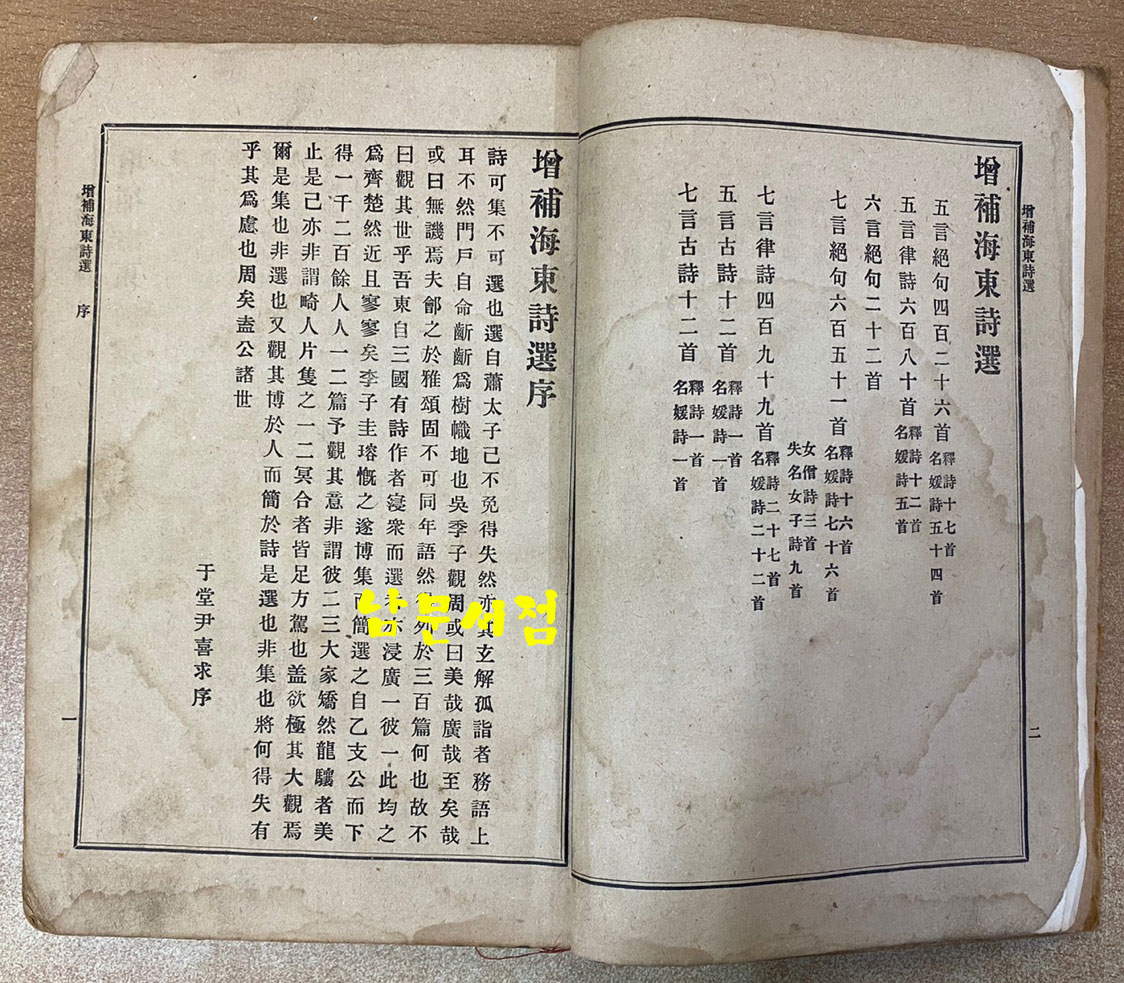 增補海東詩選
二
增補海東詩選
五言絕句四百二十六首 釋詩十七首 名媛詩五十四首
五言律詩六百八十首 釋詩十二首 名媛詩五首
六言絕句二十二首
七言絕句六百五十一首 釋詩十六首 名媛詩七十六首
女僧詩三首 失名女子詩九首
七言律詩四百九十九首 釋詩二十七首 名媛詩二十二首
五言古詩十二首 釋詩一首 名媛詩一首
七言古詩十二首 釋詩一首 名媛詩一首
增補海東詩選序
詩可集不可選也選自蕭太子已不免得失然亦其玄解孤詣者務語上
耳不然門戶自命齗齗爲樹幟地也吳季子觀周或曰美哉廣哉至矣哉
或曰無譏焉夫鄶之於雅頌固不可同年語然列於三百篇何也故不
曰觀其世乎吾東自三國有詩作者寖衆而選亦浸廣一彼一此均之
爲齊楚然近且寥寥矣李子圭瑢慨之遂博集而簡選之自乙支公而下
得一千二百餘人人一二篇予觀其意非謂彼二三大家矯然龍驤者美
止是己亦非謂畸人片隻之一二冥合者皆足方駕也盖欲極其大觀焉
爾是集也非選也又觀其博於人而簡於詩是選也非集也將何得失有
乎其爲慮也周矣盍公諸世
于堂尹喜求序
增補海東詩選 序
一
남문서점